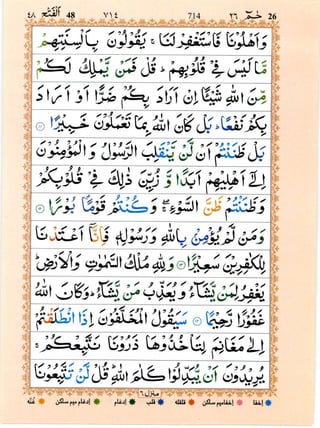 ٤٨ اَلْفَتْح 48 ٧١٤ 714 ٢٦ حٰمٓ 26
وَاَهْلُوْنَا فَاسْتَغْفِرْ لَنَا ۚ يَقُوْلُوْنَ بِاَلْسِنَتِهِمْ
مَّا لَيْسَ فِيْ قُلُوْبِهِمْ ؕ قُلْ فَمَنْ يَّمْلِكُ لَكُمْ
مِّنَ اللّٰهِ شَيْـًٔا اِنْ اَرَادَ بِكُمْ ضَرًّا اَوْ اَرَادَ
بِكُمْ نَفْعًا ؕ بَلْ كَانَ اللّٰهُ بِمَا تَعْمَلُوْنَ خَبِيْرًا
بَلْ ظَنَنْتُمْ اَنْ لَّنْ يَّنْقَلِبَ الرَّسُوْلُ وَ الْمُؤْمِنُوْنَ
اِلٰۤى اَهْلِيْهِمْ اَبَدًا وَّ زُيِّنَ ذٰلِكَ فِيْ قُلُوْبِكُمْ
وَ ظَنَنْتُمْ ظَنَّ السَّوْءِ ۖ وَ كُنْتُمْ قَوْمًۢا بُوْرًا
وَ مَنْ لَّمْ يُؤْمِنْۢ بِاللّٰهِ وَ رَسُوْلِهٖ فَاِنَّاۤ اَعْتَدْنَا
لِلْكٰفِرِيْنَ سَعِيْرًا وَ لِلّٰهِ مُلْكُ السَّمٰوٰتِ وَ الْاَرْضِ ؕ
يَغْفِرُ لِمَنْ يَّشَآءُ وَ يُعَذِّبُ مَنْ يَّشَآءُ ؕ وَ كَانَ اللّٰهُ
غَفُوْرًا رَّحِيْمًا سَيَقُوْلُ الْمُخَلَّفُوْنَ اِذَا انْطَلَقْتُمْ
اِلٰى مَغَانِمَ لِتَاْخُذُوْهَا ذَرُوْنَا نَتَّبِعْكُمْ ۚ
يُرِيْدُوْنَ اَنْ يُّبَدِّلُوْا كَلٰمَ اللّٰهِ ؕ قُلْ لَّنْ تَتَّبِعُوْنَا
منزل ٦
اخفا اخفا میم ساکن قلقله قلب ادغام ادغام میم ساکن غنه